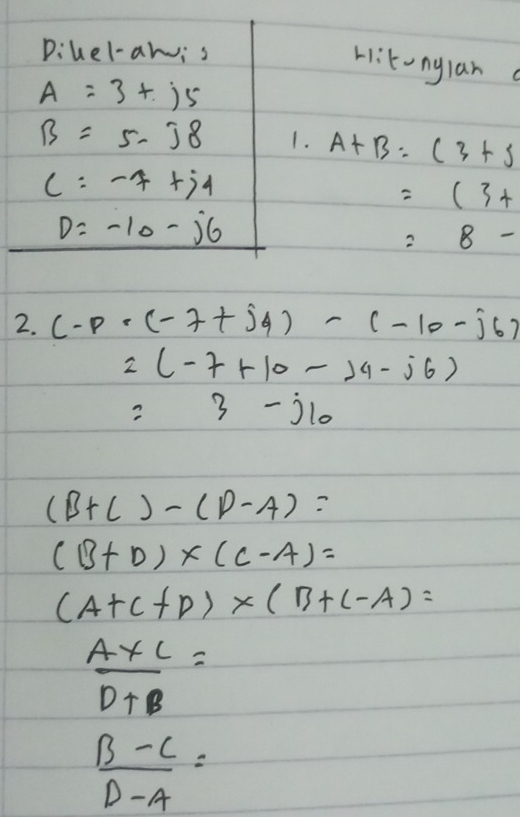 Diketahui :
A = 3 + j5
B = 5 - j8
C = -7 + j4
D = -10 - j6
Hitunglah
1. A+B = (3 + j
= (3 +
= 8 -
2. C-D = (-7 + j4) - (-10 - j6)
= (-7 + 10 - j4 - j6)
= 3 - j10
(B+C) - (D-A) =
(B+D) × (C-A) =
(A+C+D) × (B+C-A) =
A × C =
D + B
B - C =
D - A